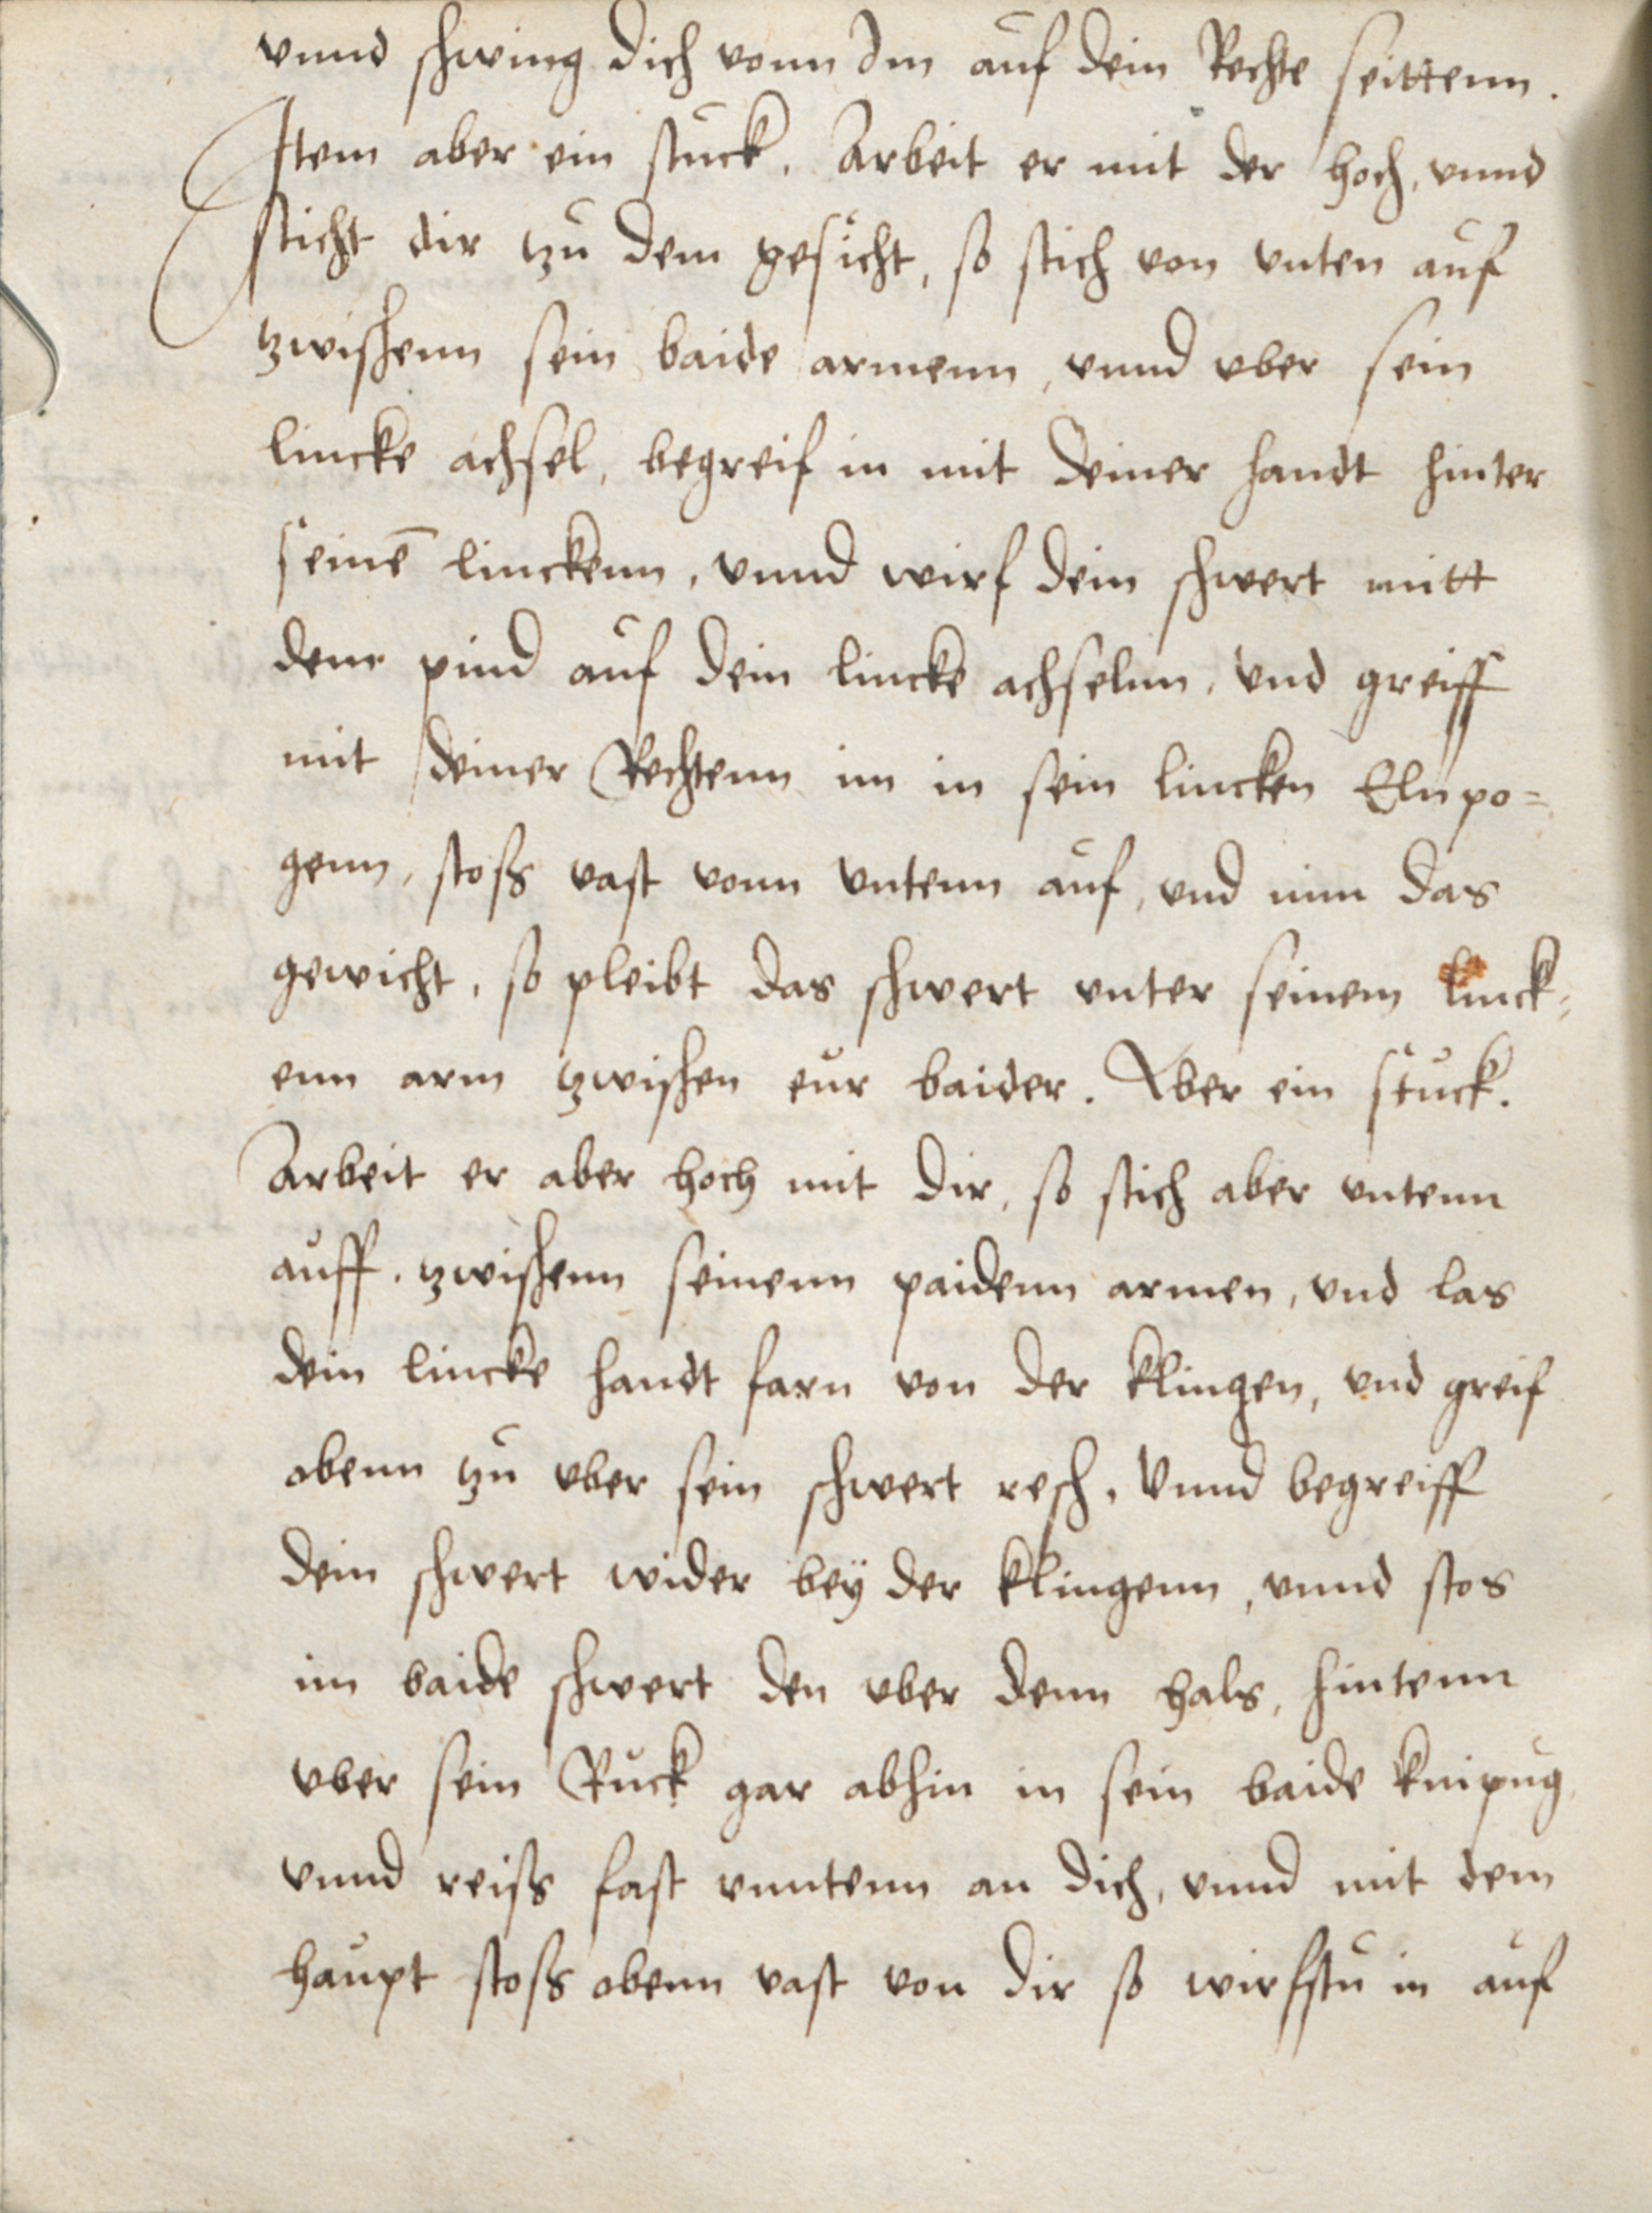 vnnd schwing dich vonn Im auf dein Rechte seittenn.
Item aber ein stuck. Arbeit er mit der hoch, vnnd
sticht dir tzu dem gesicht, so stich von vnten auf
tzwischenn sein baide armenn, vnnd vber sein
lincke achsel, begreif in mit deiner handt hinter
seinē linckenn, vnnd wirf dein schwert mitt
dem pind auf dein lincke achselnn, vnd greiff
mit deiner Rechtenn im in sein lincken Elnpo=
genn, stoss vast vonn vntenn auf, vnd nim das
gewicht, so pleibt das schwert vnter seinem linck=
enn arm tzwischen eur baider. Aber ein stuck.
Arbeit er aber hoch mit dir, so stich aber vntenn
auff. tzwischenn seinenn paidenn armen, vnd las
dein lincke handt farn von der klingen, vnd greif
obenn tzu vber sein schwert resch, vnnd begreiff
dein schwert wider beÿ der klingenn, vnnd stos
im baide schwert den vber denn hals, hintenn
vber sein Ruck gar abhin in sein baide knipug
vnnd reiss fast vnntenn an dich, vnnd mit dem
haupt stoss obenn vast von dir so wirfstu in auf